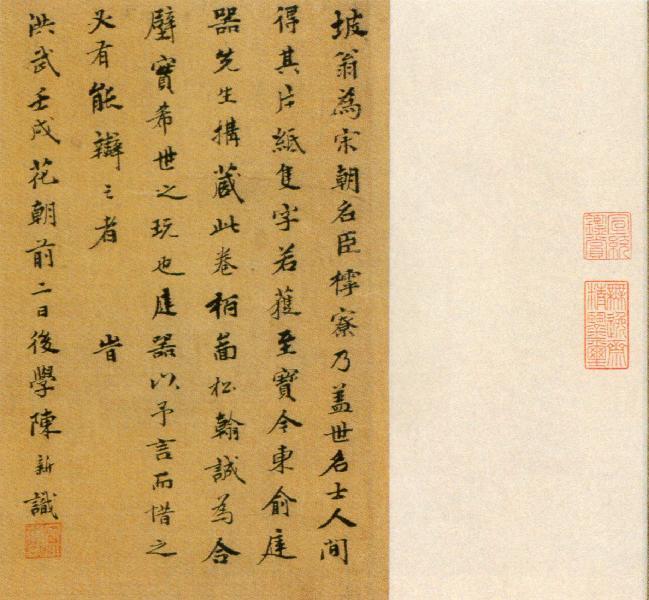 坡翁為宋朝名臣樗寮乃蓋世名士人間
得其片紙隻字若獲至寶今東俞庭
器先生搆藏此卷栢啚松翰誠為合
璧實希世之玩也庭器以予言而惜之
又有能辯之者 旹
洪武壬戌花朝前二日後學陳新識
宣統鑒賞
無逸齋精鑒璽